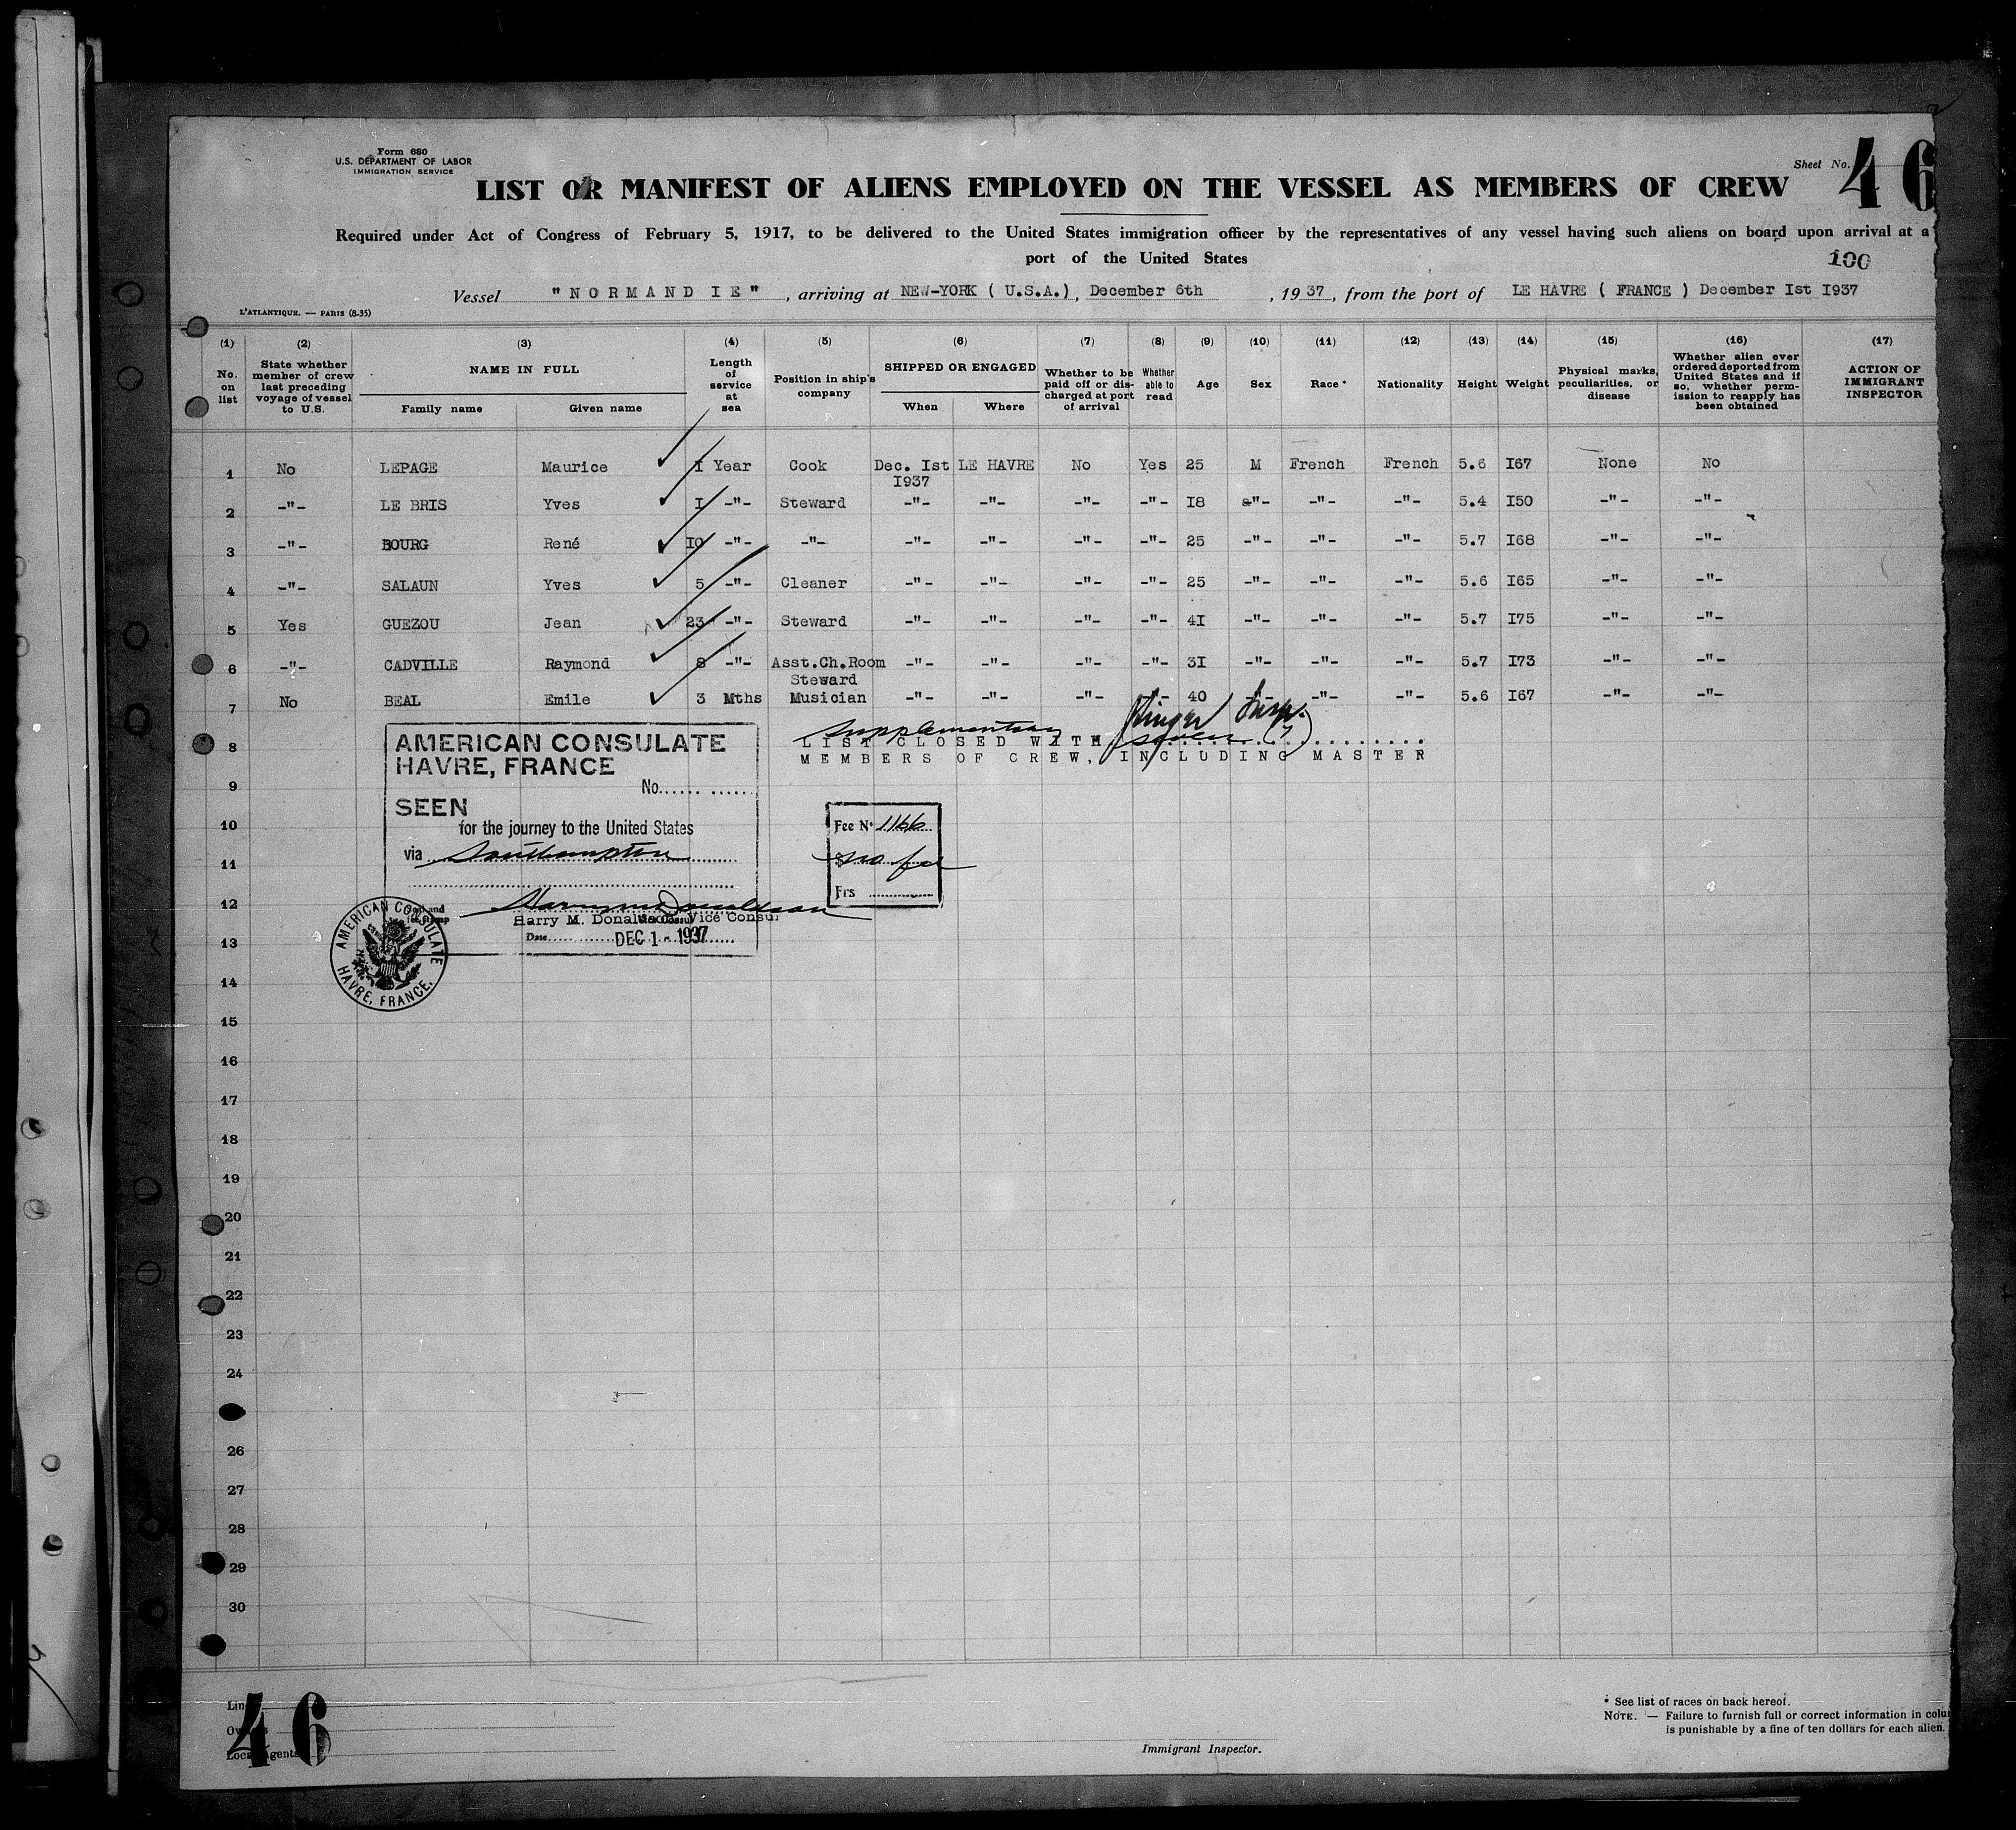 Form 680
U.S. DEPARTMENT OF LABOR
IMMIGRATION SERVICE
Sheet No. 46
LIST OR MANIFEST OF ALIENS EMPLOYED ON THE VESSEL AS MEMBERS OF CREW
Required under Act of Congress of February 5, 1917, to be delivered to the United States immigration officer by the representatives of any vessel having such aliens on board upon arrival at a
port of the United States
100
Vessel "NORMANDIE", arriving at NEW-YORK ( U.S.A.), December 6th, 1937, from the port of LE HAVRE ( FRANCE ) December Ist I937
L'ATLANTIQUE. — PARIS (8-35)
(1) (2) (3) (4) (5) (6) (7) (8) (9) (10) (11) (12) (13) (14) (15) (16) (17)
No. on list
State whether member of crew last preceding voyage of vessel to U.S.
NAME IN FULL
Family name Given name
Length of service at sea
Position in ship's company
SHIPPED OR ENGAGED
When Where
Whether to be paid off or discharged at port of arrival
Whether able to read
Age
Sex
Race*
Nationality
Height
Weight
Physical marks, peculiarities, or disease
Whether alien ever ordered deported from United States and if so, whether permission to reapply has been obtained
ACTION OF IMMIGRANT INSPECTOR
1 No LEPAGE Maurice I Year Cook Dec. Ist I937 LE HAVRE No Yes 25 M French French 5.6 I67 None No
2 -"- LE BRIS Yves I -"- Steward -"- -"- -"- -"- I8 -"- -"- -"- 5.4 I50 -"- -"-
3 -"- BOURG René IO -"- -"- -"- -"- -"- -"- 25 -"- -"- -"- 5.7 I68 -"- -"-
4 -"- SALAUN Yves 5 -"- Cleaner -"- -"- -"- -"- 25 -"- -"- -"- 5.6 I65 -"- -"-
5 Yes GUEZOU Jean 23 -"- Steward -"- -"- -"- -"- 4I -"- -"- -"- 5.7 I75 -"- -"-
6 -"- CADVILLE Raymond 8 -"- Asst.Ch.Room Steward -"- -"- -"- -"- 3I -"- -"- -"- 5.7 I73 -"- -"-
7 No BEAL Emile 3 Mths Musician -"- -"- -"- -"- 40 -"- -"- -"- 5.6 I67 -"- -"-
supplementary
LIST CLOSED WITH seven (7)
MEMBERS OF CREW, INCLUDING MASTER
AMERICAN CONSULATE
HAVRE, FRANCE
No.
SEEN
for the journey to the United States
via Southampton
Harry M. Donaldson
Harry M. Donaldson Vice Consul
Date DEC 1 - 1937
AMERICAN CONSULATE
HAVRE, FRANCE.
Fee No 1166
$ no fee
Frs
8
9
10
11
12
13
14
15
16
17
18
19
20
21
22
23
24
26
27
28
29
30
Line
Owners
Local Agents
46
Immigrant Inspector.
* See list of races on back hereof.
NOTE. — Failure to furnish full or correct information in
is punishable by a fine of ten dollars for each alien.